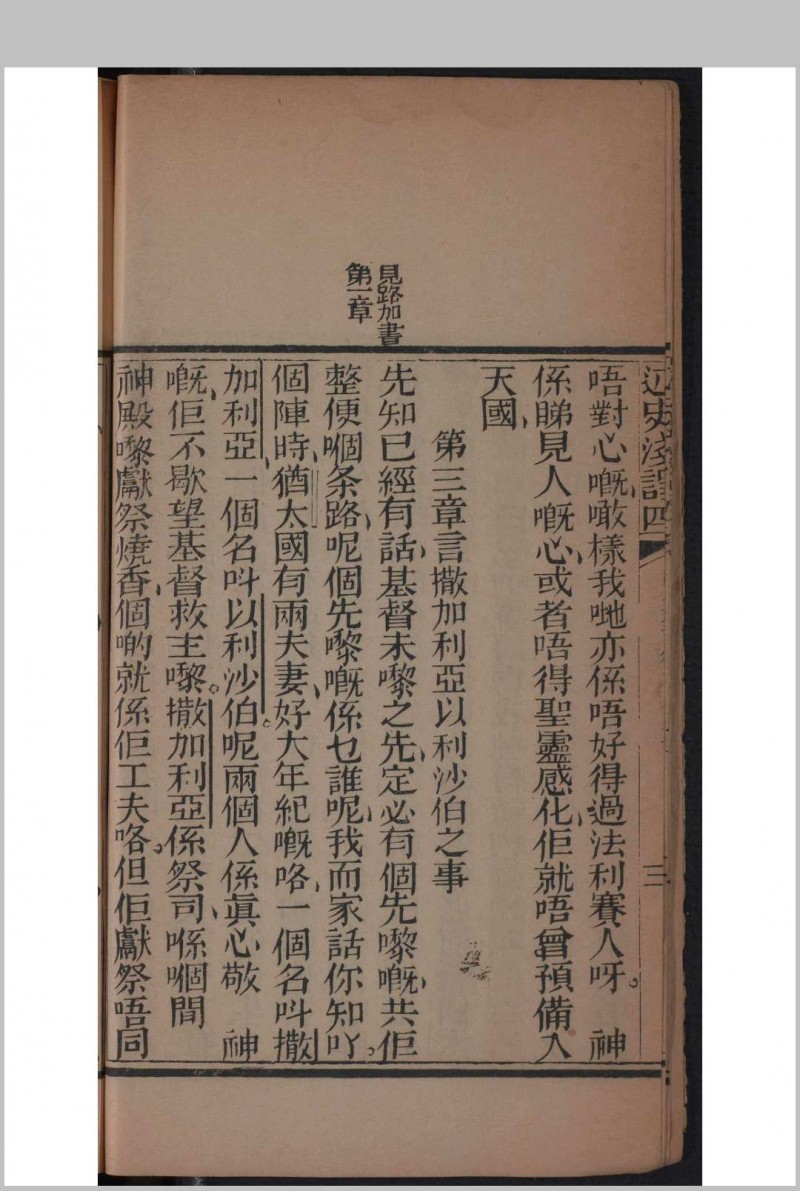 近史淺譯四 三
唔對心嘅、噉樣我哋亦係唔好得過法利賽人呀。 神
係睇見人嘅心、或者唔得聖靈感化、佢就唔曾預備入
天國、
第三章言撒加利亞以利沙伯之事
見路加書
第一章
先知已經有話、基督未嚟之先、定必有個先嚟嘅、共佢
整便嗰条路、呢個先嚟嘅係乜誰呢、我而家話你知吖。
個陣時、猶太國有兩夫妻、好大年紀嘅咯、一個名呌撒
加利亞、一個名呌以利沙伯。呢兩個人係眞心敬 神
嘅、佢不歇望基督救主嚟。撒加利亞係祭司、喺嗰間
神殿嚟獻祭燒香、個啲就係佢工夫咯。但佢獻祭唔同